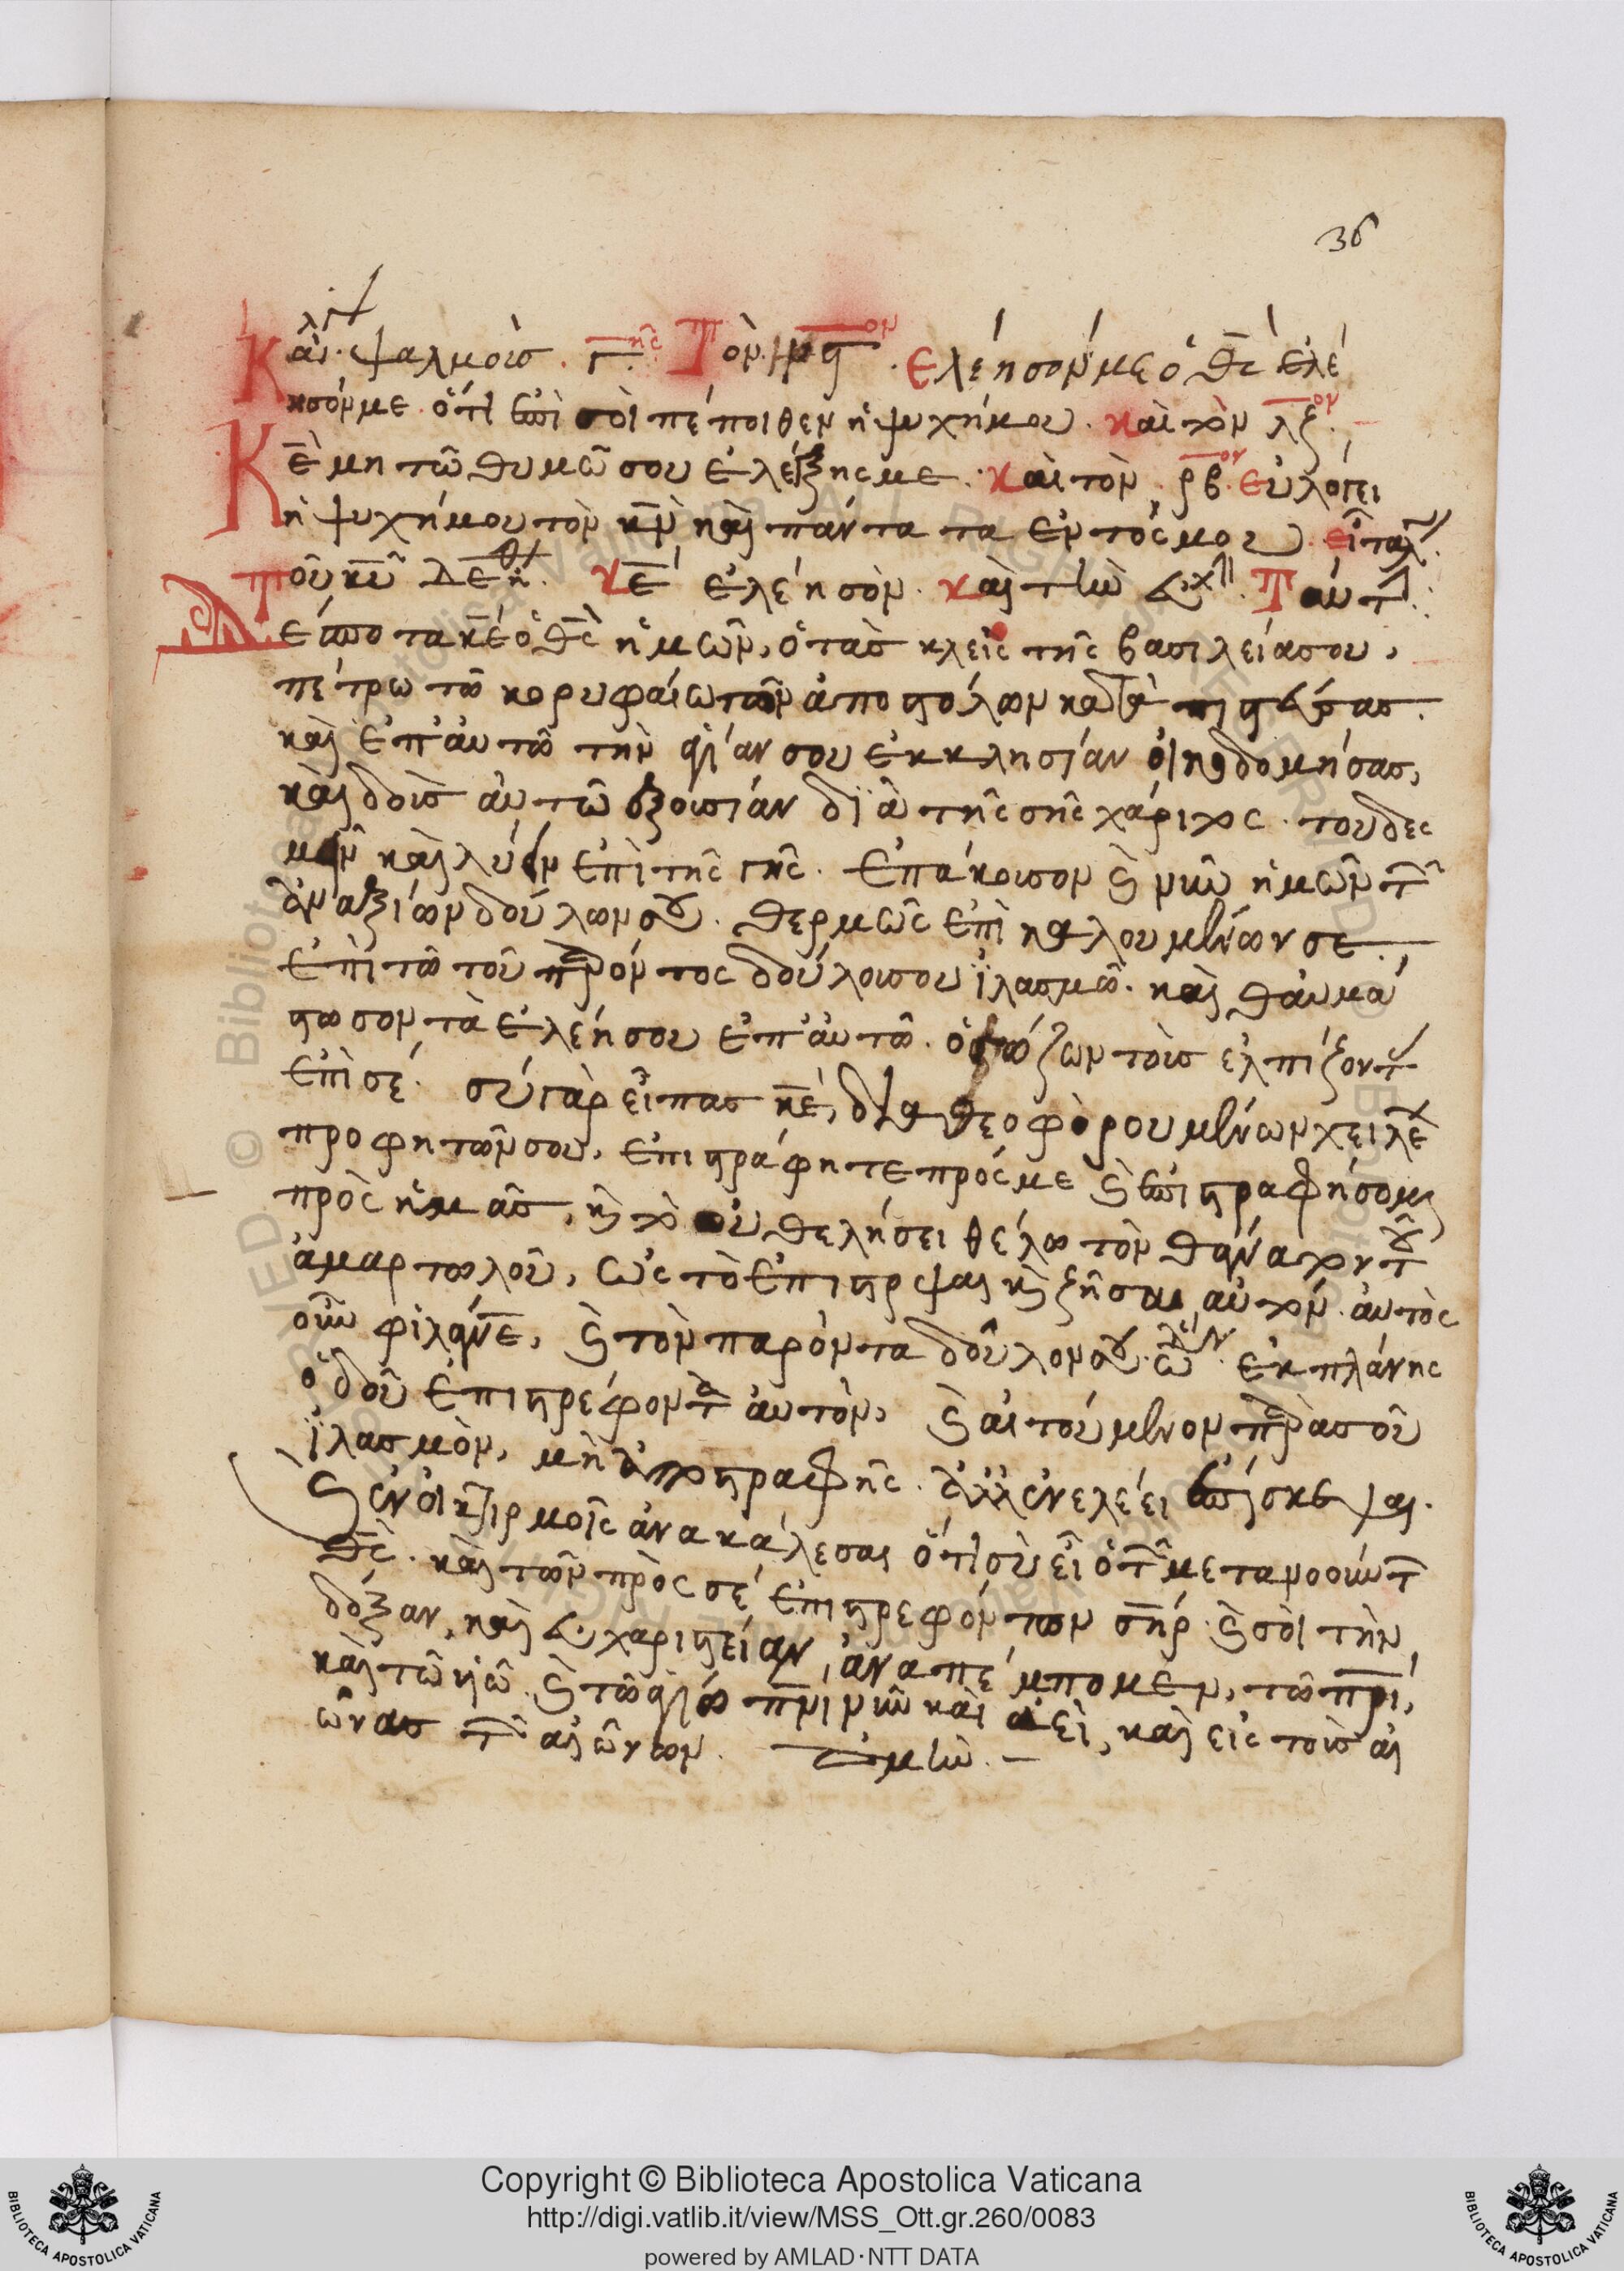 36
Κὰν ψαλμοὺσ. γ τῆς Τὸν ν̅ϛ̅ον. Ελέησόν με ὁ θ̅ς̅ ἐλέ
ησόν με. ὅτι ἐπὶ σοὶ πέποιθεν ἡ ψυχή μου. και τὸν λζον.
Κ̅ε̅ μη τῶ θυμῶ σου ἐλέγξης με. και τὸν ρβον. ευλόγει
ἡ ψυχή μου τὸν κ̅ν̅ και πάντα τα ἐντός μου.
τοῦ κ̅υ̅ δεη. Κ̅ε̅ ἐλέησον. και τὴν εὐχ. ταύτ.
Δέσποτα κ̅ε̅ ὁ θ̅ς̅ ἡμῶν, ὁ τὰσ κλεῖς τῆς βασιλείασ σου,
πέτρω τῶ κορυφαίω τῶν ἀποστόλων καταπιστεύσασ.
καὶ ἐπ' ἀυτῶ τὴν ἁγίαν σου ἐκκλησίαν οἰκοδομήσασ,
καὶ δοὺσ ἀυτῶ ἐξουσίαν διὰ τῆς σῆς χάριτος. του δεσ
μεῖν καὶ λύειν ἐπὶ τῆς γῆς. Επάκουσον ϗ νῦν ἡμῶν τῶν
ἀναξίων δούλων σου. θερμῶς ἐπικαλουμένων σε.
ἐπὶ τῶ τοῦ παρόντος δούλου σου ἱλασμῶ. καὶ θαυμά
στωσον τὰ ἐλέη σου ἐπ' ἀυτῶ. ὁ σώζων τοὺσ ἐλπίζοντ
ἐπὶ σέ. σύ γὰρ εἶπασ κ̅ε̅, δια θεοφόρουμένων χειλέ
προφητῶν σου, ἐπιστράφητε πρός με ϗ ἐπιστραφήσομαι
πρὸς ἡμᾶσ, ϗ τὸ οὐ θελήσει θέλω τὸν θάνατον τοῦ
ἁμαρτωλοῦ, ὡς τὸ ἐπιστρέψαι ϗ ζῆσαι αὐτόν. ἀυτὸς
οὖν φιλάν̅ε̅, ϗ τὸν παρόντα δοῦλον σου. ἐκ πλάνης
ὁδοῦ ἐπιστρέφοντα ἀυτὸν, ϗ αἰτούμενον παρὰ σοῦ
ἱλασμὸν, μὴ ἀποστραφῆς. ἀλλ' ἐν ἐλέει ἐπίσκεψαι.
ϗ ἐν οἰκτιρμοῖς ἀνακάλεσαι ὅτι σὺ εἶ ὁ τῶν μετανοούντ
θ̅ς̅. καὶ τῶν πρὸς σέ ἐπιστρεφόντων σ̅η̅ρ̅. ϗ σοὶ τὴν
δόξαν, καὶ εὐχαριστείαν, ἀναπέμπομεν, τῶ π̅ρ̅ι̅,
καὶ τῶ υἱῶ. ϗ τῶ ἁγίω π̅ν̅ι̅ νῦν καὶ ἀεὶ, καὶ εἰς τοὺσ αἰ
ῶνασ τῶν αἰώνων. ἀμὴν.
Copyright © Biblioteca Apostolica Vaticana
http://digi.vatlib.it/view/MSS_Ott.gr.260/0083
powered by AMLAD·NTT DATA
BIBLIOTECA APOSTOLICA VATICANA
BIBLIOTECA APOSTOLICA VATICANA